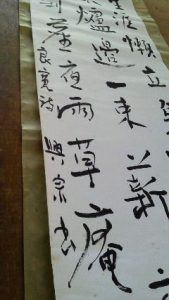 涯懶立
爐邊一束薪
塵夜雨草庵
良寛詩 興宗書